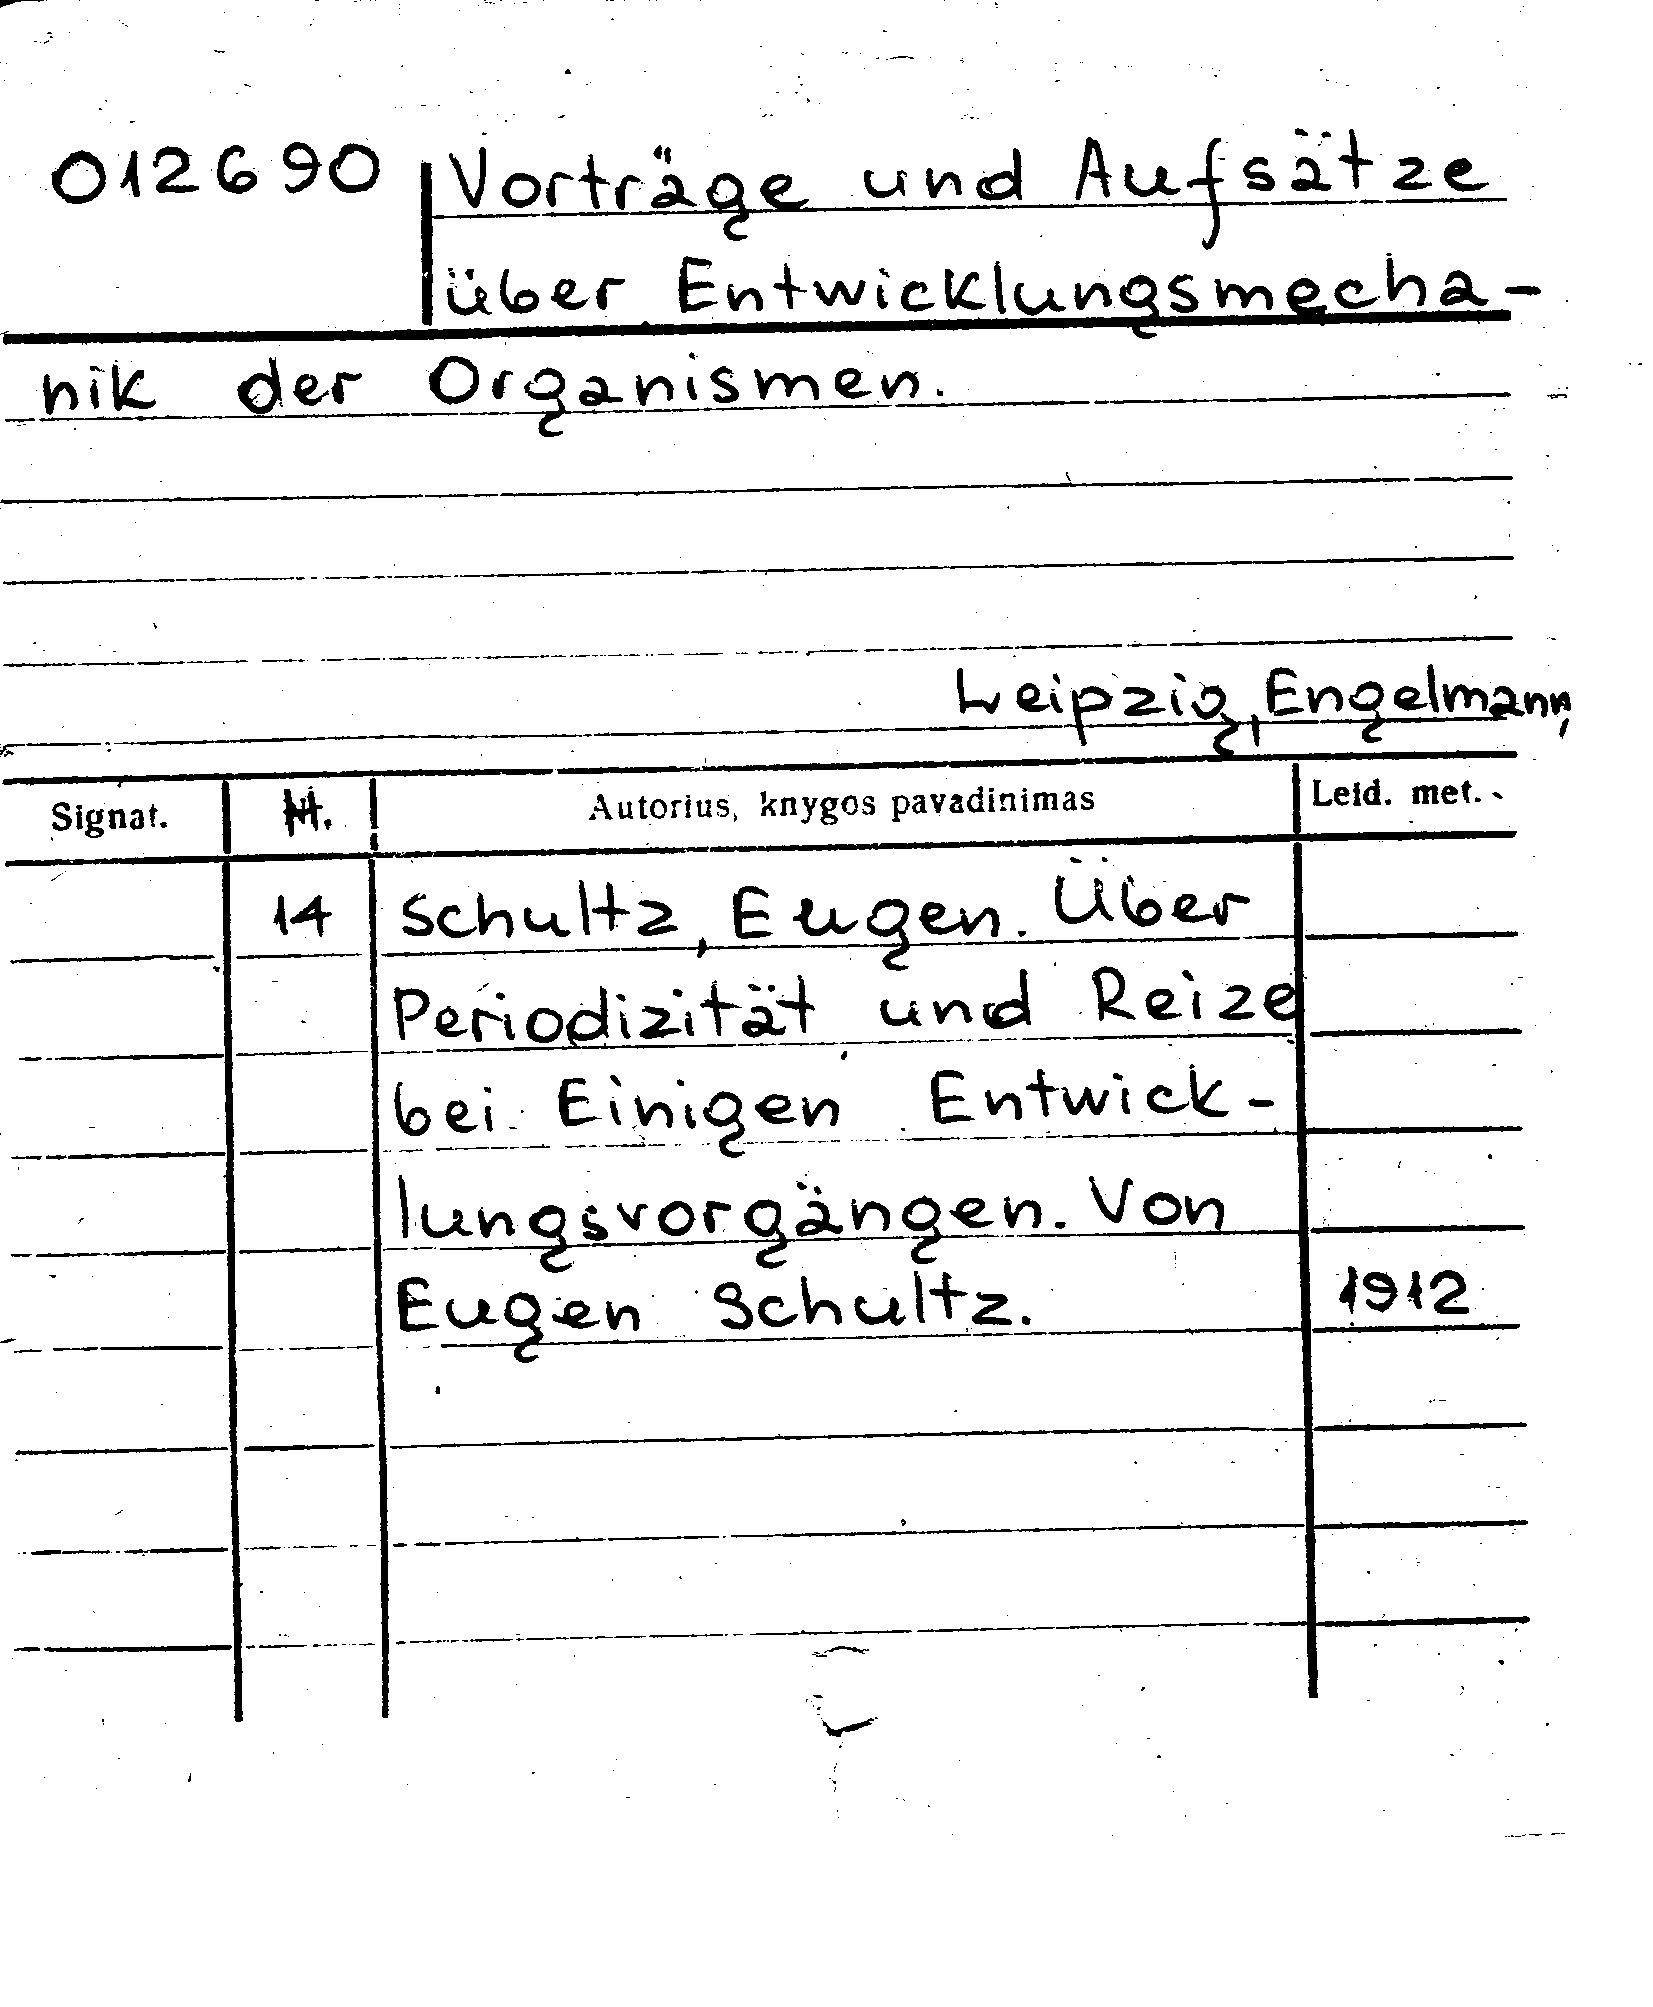 012690 Vorträge und Aufsätze
über Entwicklungsmecha-
nik der Organismen.
Leipzig, Engelmann,
Signat. Autorius, knygos pavadinimas Leid. met.
14 Schultz, Eugen. Über
Periodizität und Reize
bei Einigen Entwick-
lungsvorgängen. Von
Eugen Schultz. 1912